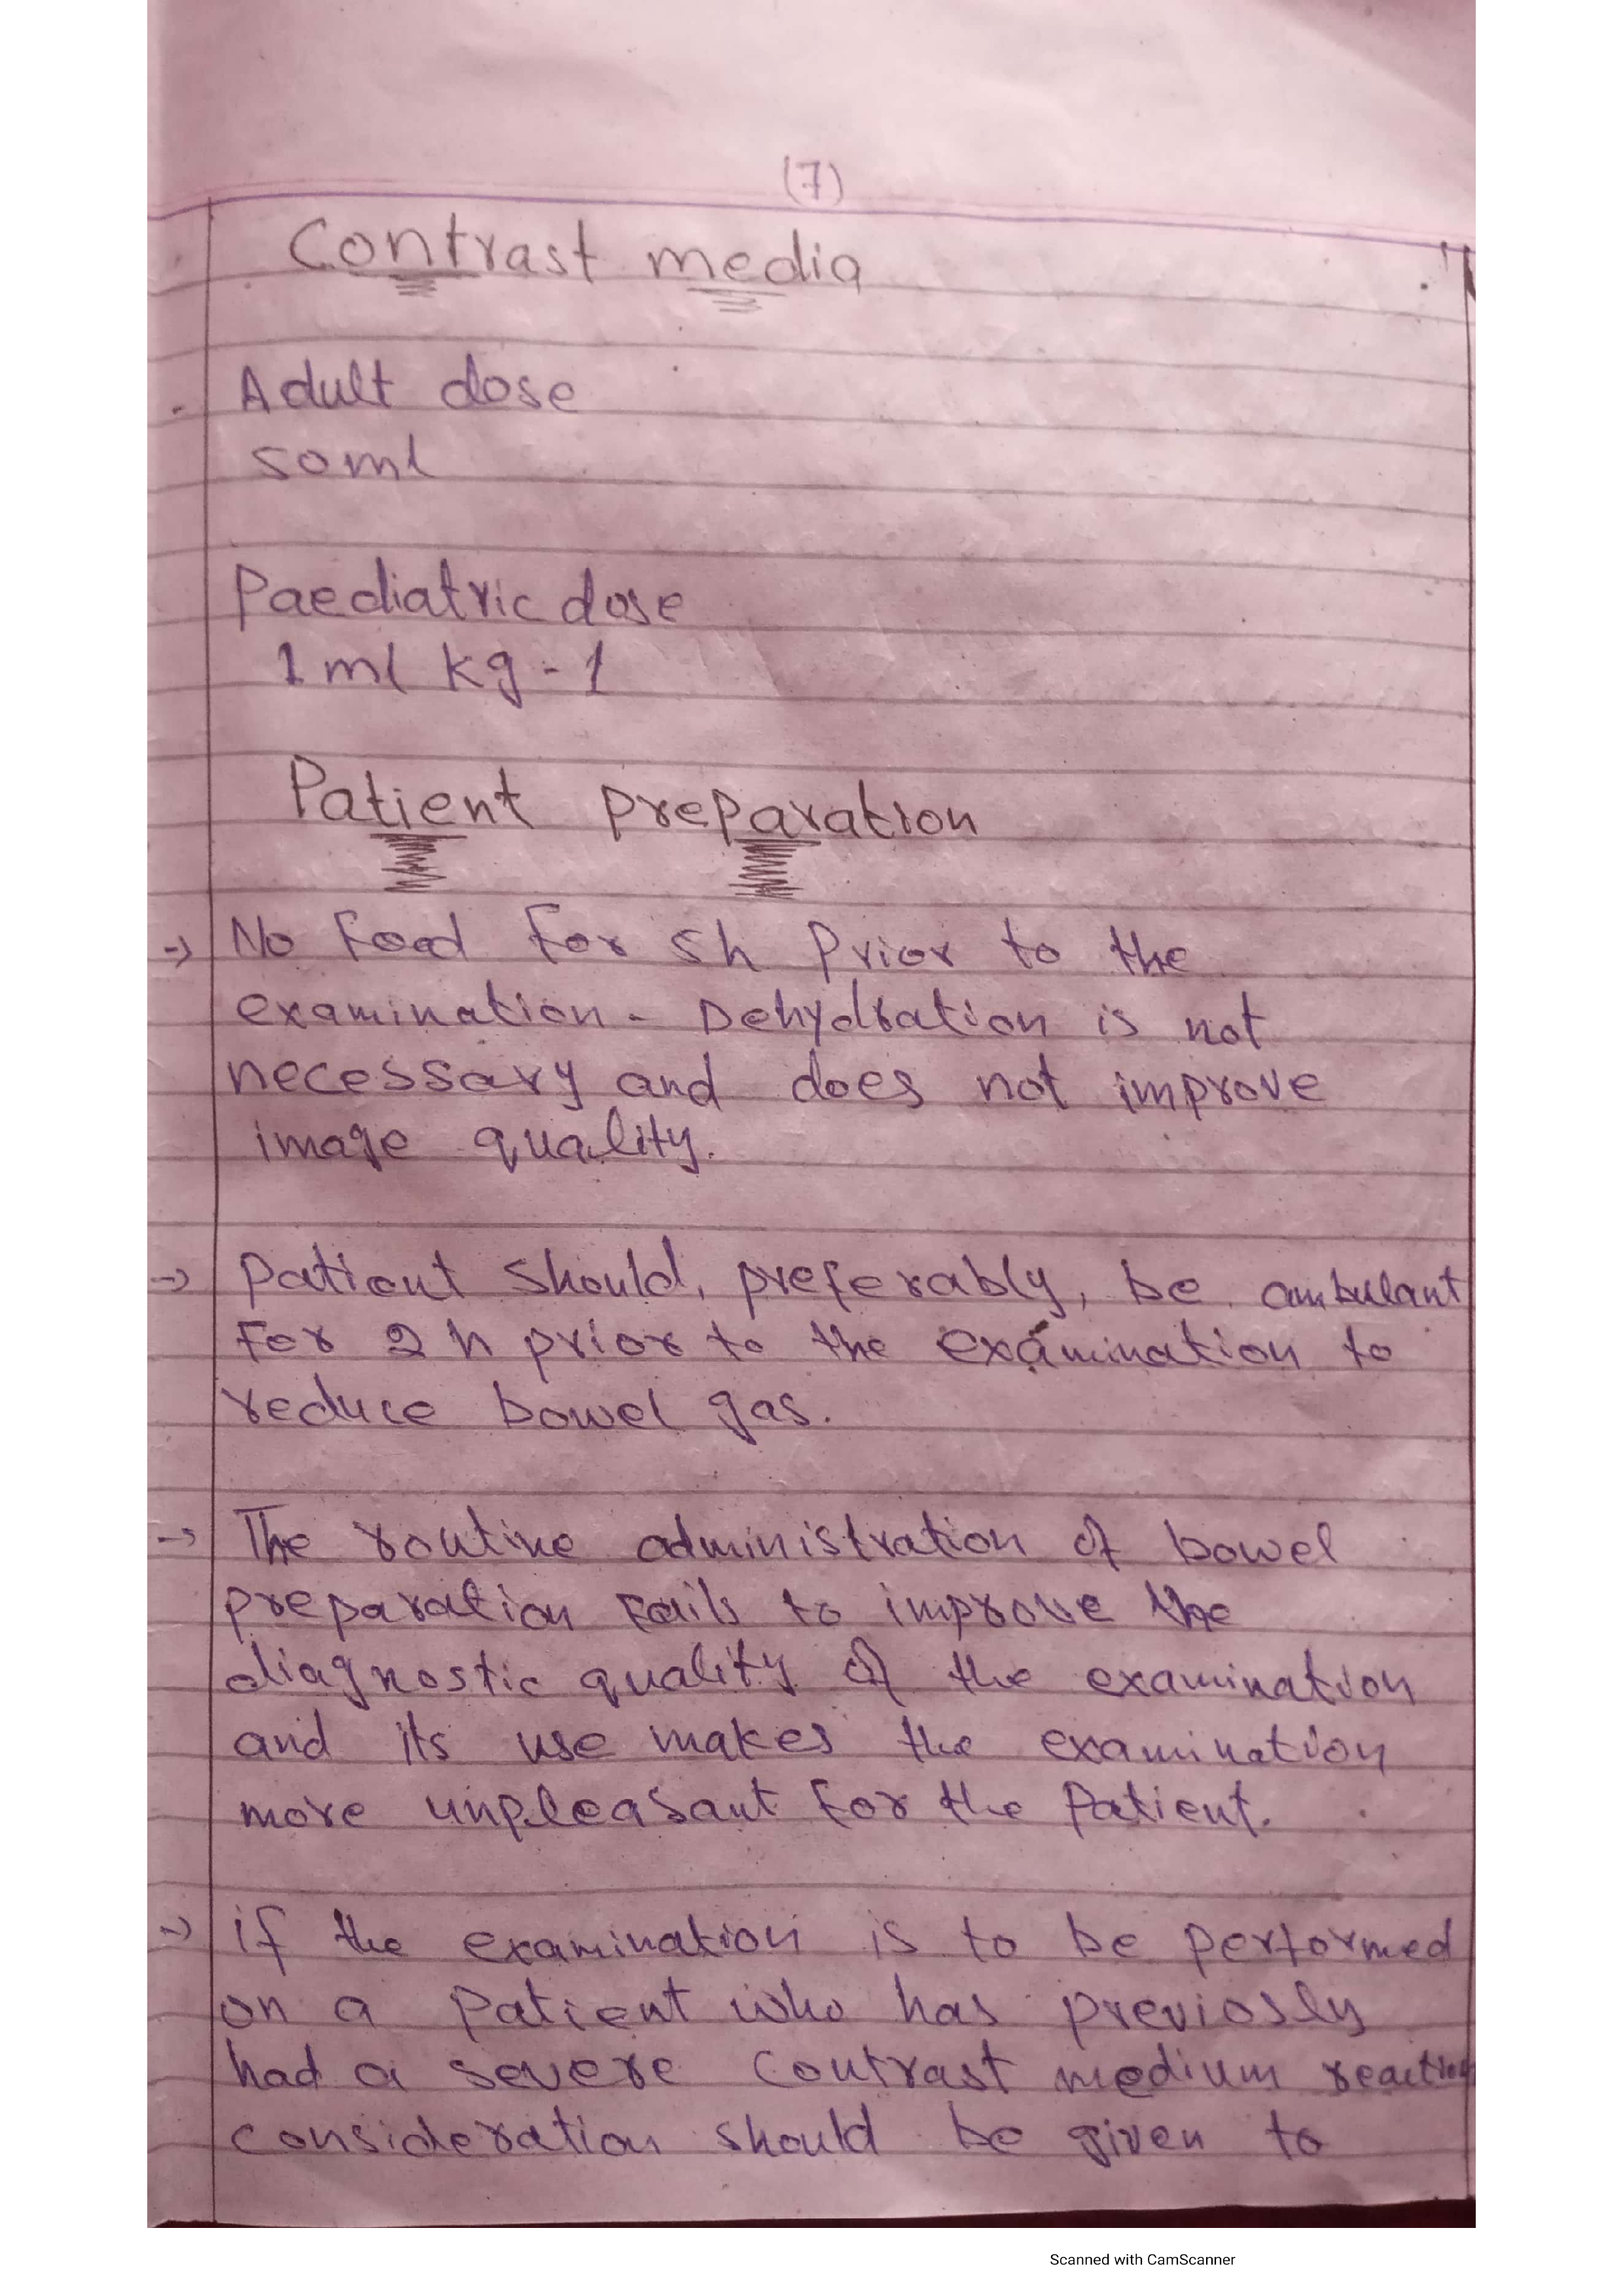 (7)
Contrast media
Adult dose
50ml
Paediatric dose
1 ml kg-1
Patient preparation
→ No food for 5h Prior to the
examination - Dehydration is not
necessary and does not improve
image quality.
→ patient should, preferably, be ambulant
for 2 h prior to the examination to
reduce bowel gas.
→ The routine administration of bowel
preparation fails to improve the
diagnostic quality of the examination
and its use makes the examination
more unpleasant for the Patient.
→ if the examination is to be performed
on a patient who has previosly
had a severe contrast medium reaction
consideration should be given to
Scanned with CamScanner